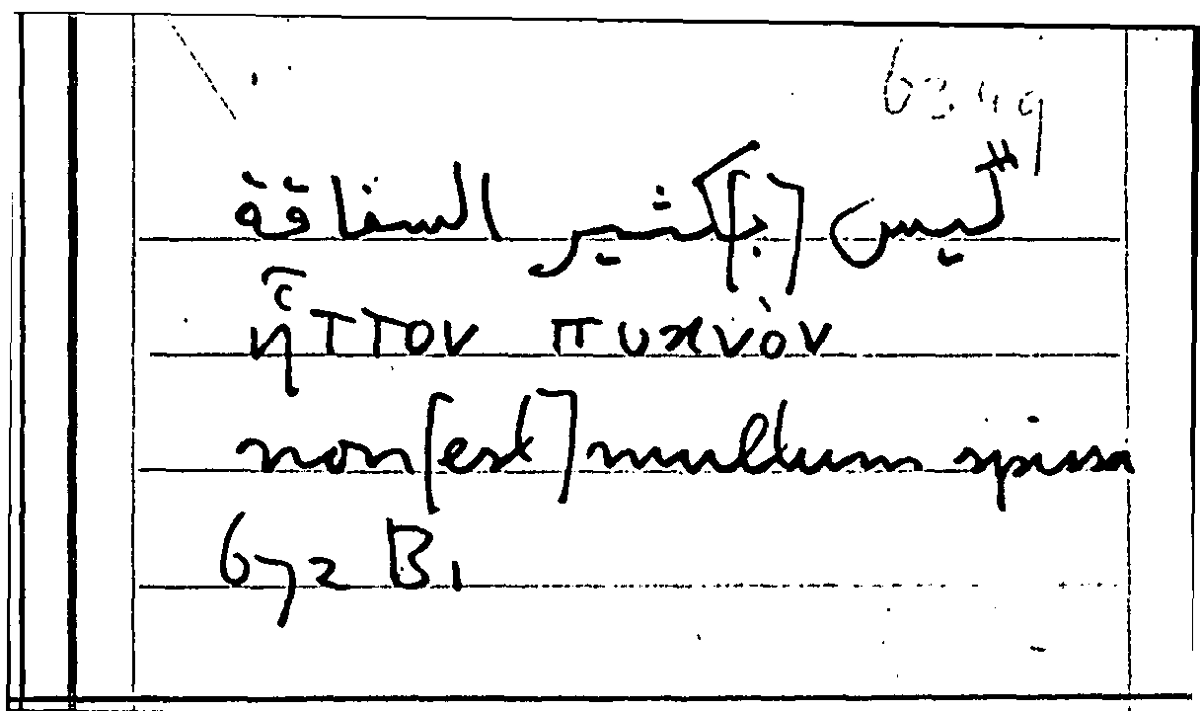 ليس [بـ]كثير السفاقة
ἧττον πυκνὸν
non [est] multum spissa
672 B1